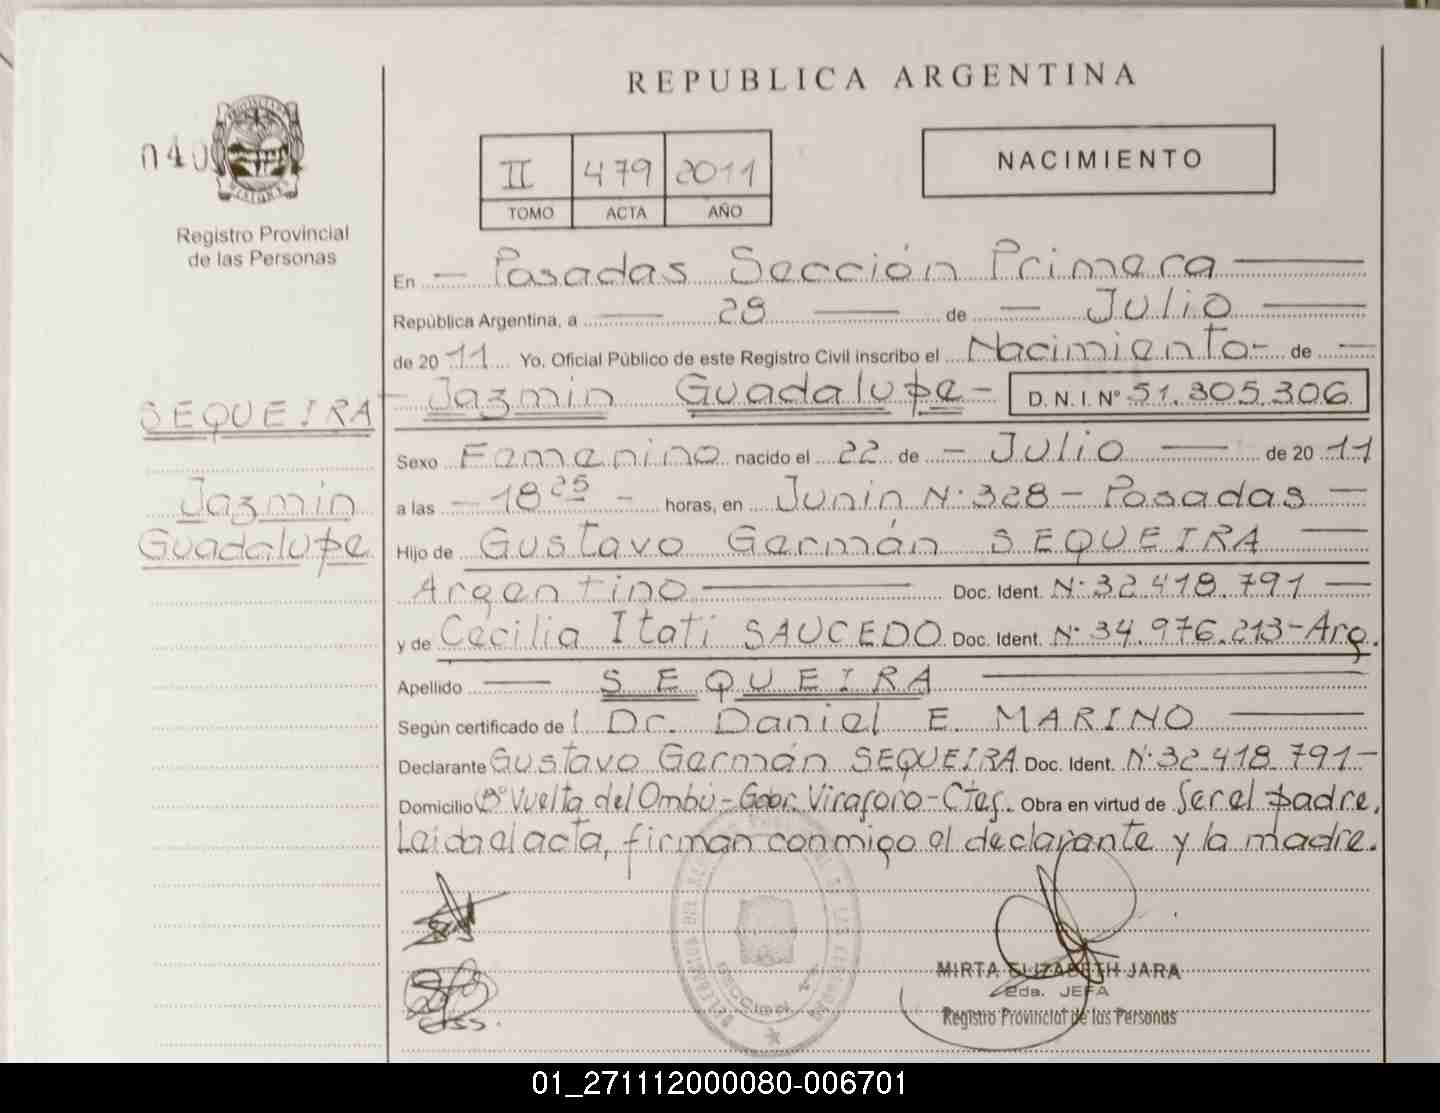 REPUBLICA ARGENTINA
040
II 479 2011
TOMO ACTA AÑO
NACIMIENTO
Registro Provincial
de las Personas
En — Posadas Sección Primera —
República Argentina, a — 28 — de — Julio —
de 20 11 Yo, Oficial Público de este Registro Civil inscribo el Nacimiento - de —
SEQUEIRA
Jazmin
Guadalupe
— Jazmin Guadalupe — D. N. I. Nº 51.305.306
Sexo Femenino nacido el 22 de — Julio — de 20 11
a las — 18 25 — horas, en Junin N: 328 - Posadas —
Hijo de Gustavo Germán SEQUEIRA —
Argentino — Doc. Ident. N: 32.418.791 —
y de Cecilia Itati SAUCEDO Doc. Ident. N: 34.976.213-Arg.
Apellido — SEQUEIRA —
Según certificado de l Dr. Daniel E. MARINO —
Declarante Gustavo Germán SEQUEIRA Doc. Ident. N: 32.418.791 -
Domicilio Bº Vuelta del Ombú - Gdor. Virasoro - Ctes. Obra en virtud de Ser el padre.
Leida el acta, firman conmigo el declarante y la madre.
MIRTA ELIZABETH JARA
2da. JEFA
Registro Provincial de las Personas
01_271112000080-006701